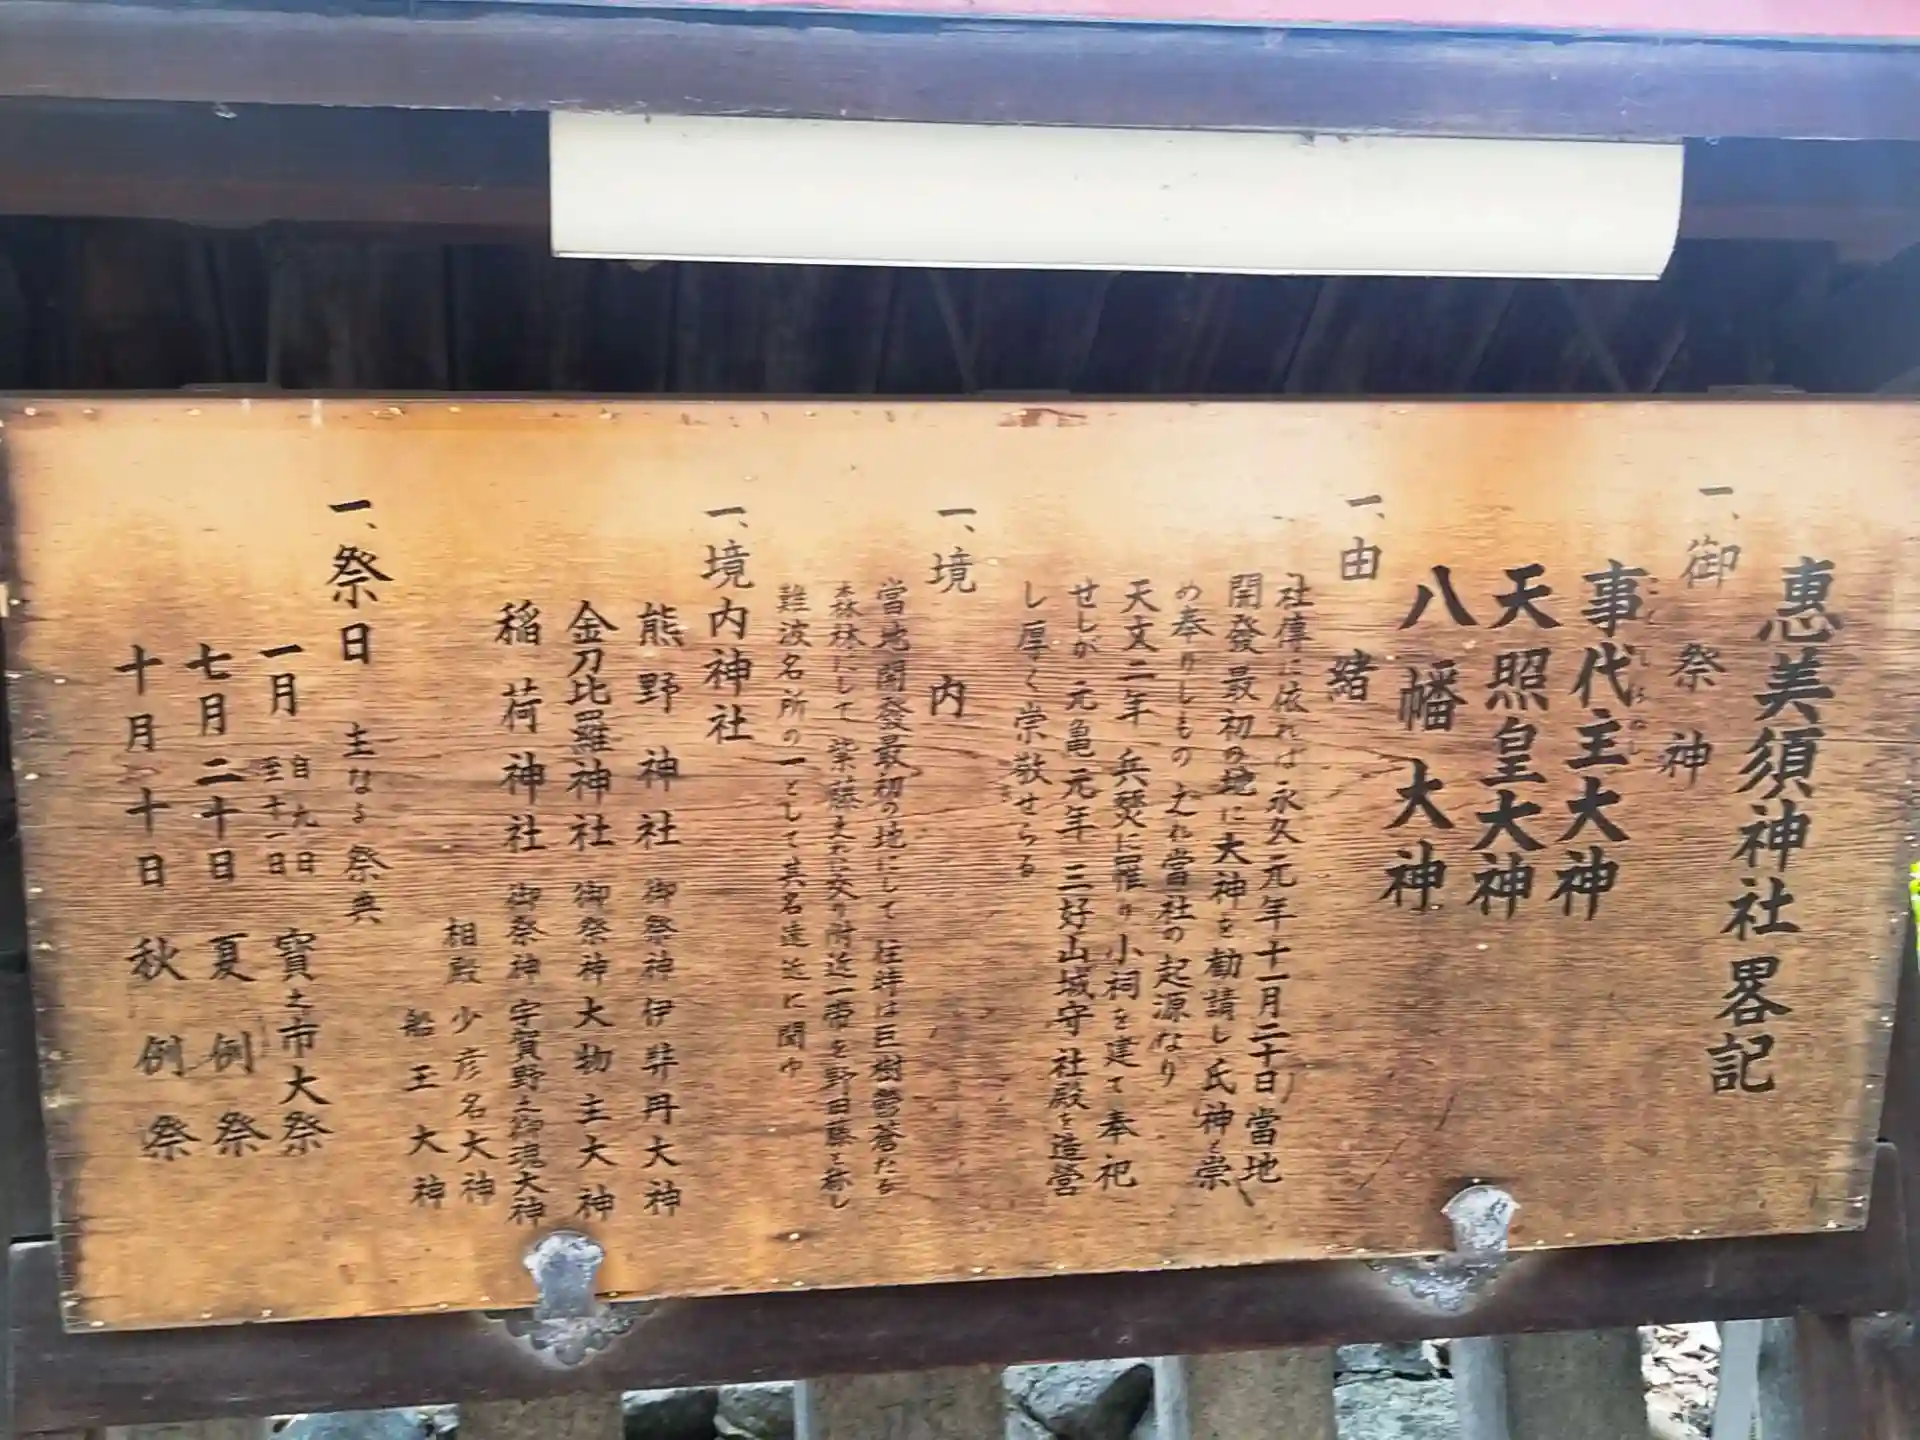 惠美須神社畧記
一、御祭神
事代主大神
ことしろぬし
天照皇大神
八幡大神
一、由緒
社傳に依れば永久元年十一月二十日當地
開發最初の地に大神を勧請し氏神と崇
め奉りしもの之れ當社の起源なり
天文二年兵燹に罹り小祠を建て奉祀
せしが元亀元年三好山城守社殿を造営
し厚く崇敬せらる
一、境内
當地開發最初の地にして往時は巨樹鬱蒼たる
森林にして紫藤之れに交り附近一帯を野田藤と称し
難波名所の一として其名遠近に聞ゆ
一、境内神社
熊野神社 御祭神 伊弉冊大神
金刀比羅神社 御祭神 大物主大神
稲荷神社 御祭神 宇賀野之御魂大神
相殿 少彦名大神
船王大神
一、祭日 主なる祭典
一月 自九日 至十一日 寳之市大祭
七月二十日 夏例祭
十月二十日 秋例祭